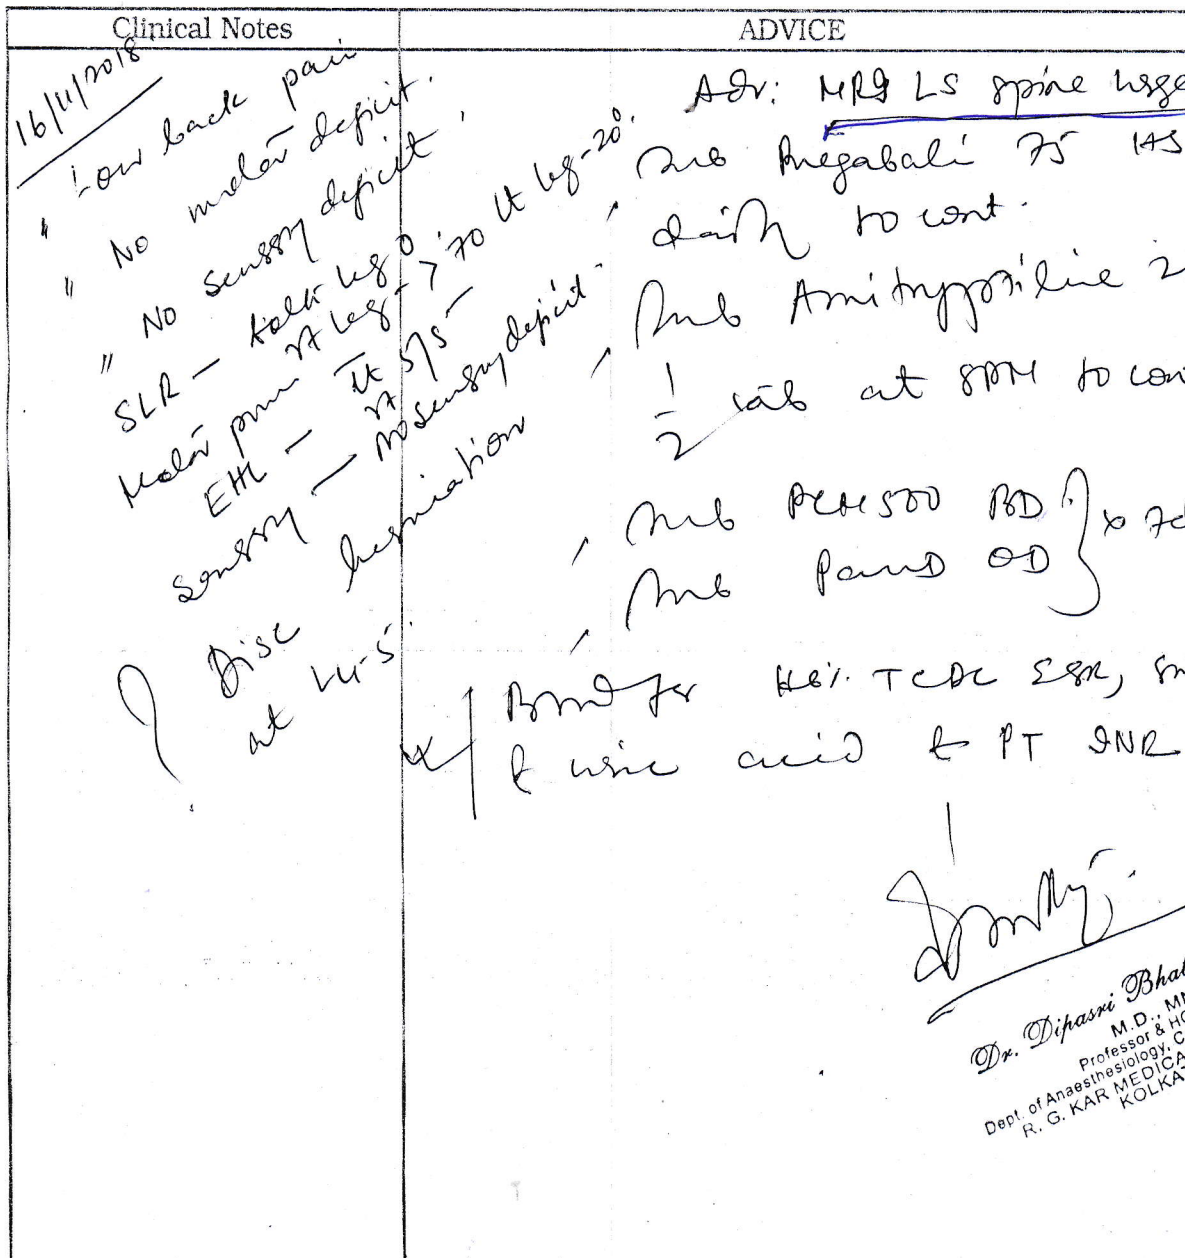 Clinical Notes
ADVICE
16/11/2018
" Low back pain
" No motor deficit.
" No sensory deficit.
SLR — both leg
Rt leg -> 70 Lt leg-20°.
Motor power
EHL — Rt Lt 5/5
Sensory — No sensory deficit.
? Disc herniation
at L4-5.
Adv: MRI LS spine
Tab 75 HS
daily to cont.
Tab 2
1/2 tab at 8PM to con
Tab PCM500 BD } x 7d
Tab PanD OD
Blood for Hb% TCDC ESR,
& uric acid & PT INR
Dr. Dipasri Bhat
M.D., MN
Professor & HO
Dept. of Anaesthesiology, C
R. G. KAR MEDICA
KOLKAT